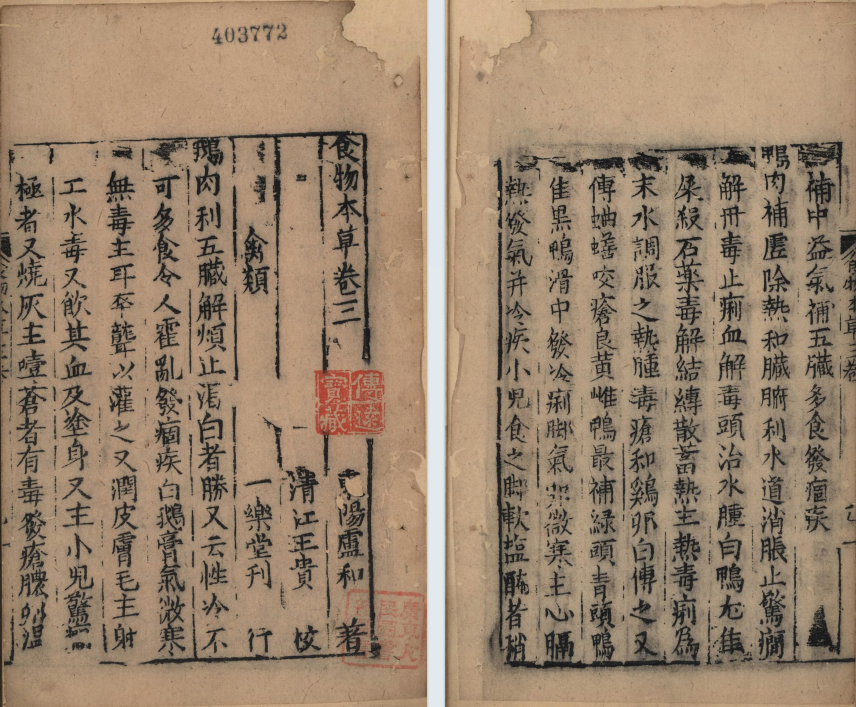 403772
食物本草卷三
傳遠
寶藏
陽盧和 著
清江王貴 校
一樂堂刊 行
禽類
鵝肉利五臟解煩止渴白者勝又云性冷不
可多食令人霍亂發痼疾白鵝膏氣微寒
無毒主耳卒聾以灌之又潤皮膚毛主射
工水毒又飲其血及塗身又主小兒驚癇
極者又燒灰主噎蒼者有毒發瘡膿卵温
補中益氣補五臟多食發痼疾
鴨肉補虛除熱和臟腑利水道消脹止驚癇
解丹毒止痢血解毒頭治水腫白鴨尤佳
屎殺石藥毒解結縛散蓄熱主熱毒痢為
末水調服之熱腫毒瘡和鷄卵白傅之又
傅蚰蟮咬瘡良黃雌鴨最補綠頭青頭鴨
佳黑鴨滑中發冷痢脚氣卵微寒主心膈
熱發氣并冷疾小兒食之脚軟塩醃者稍